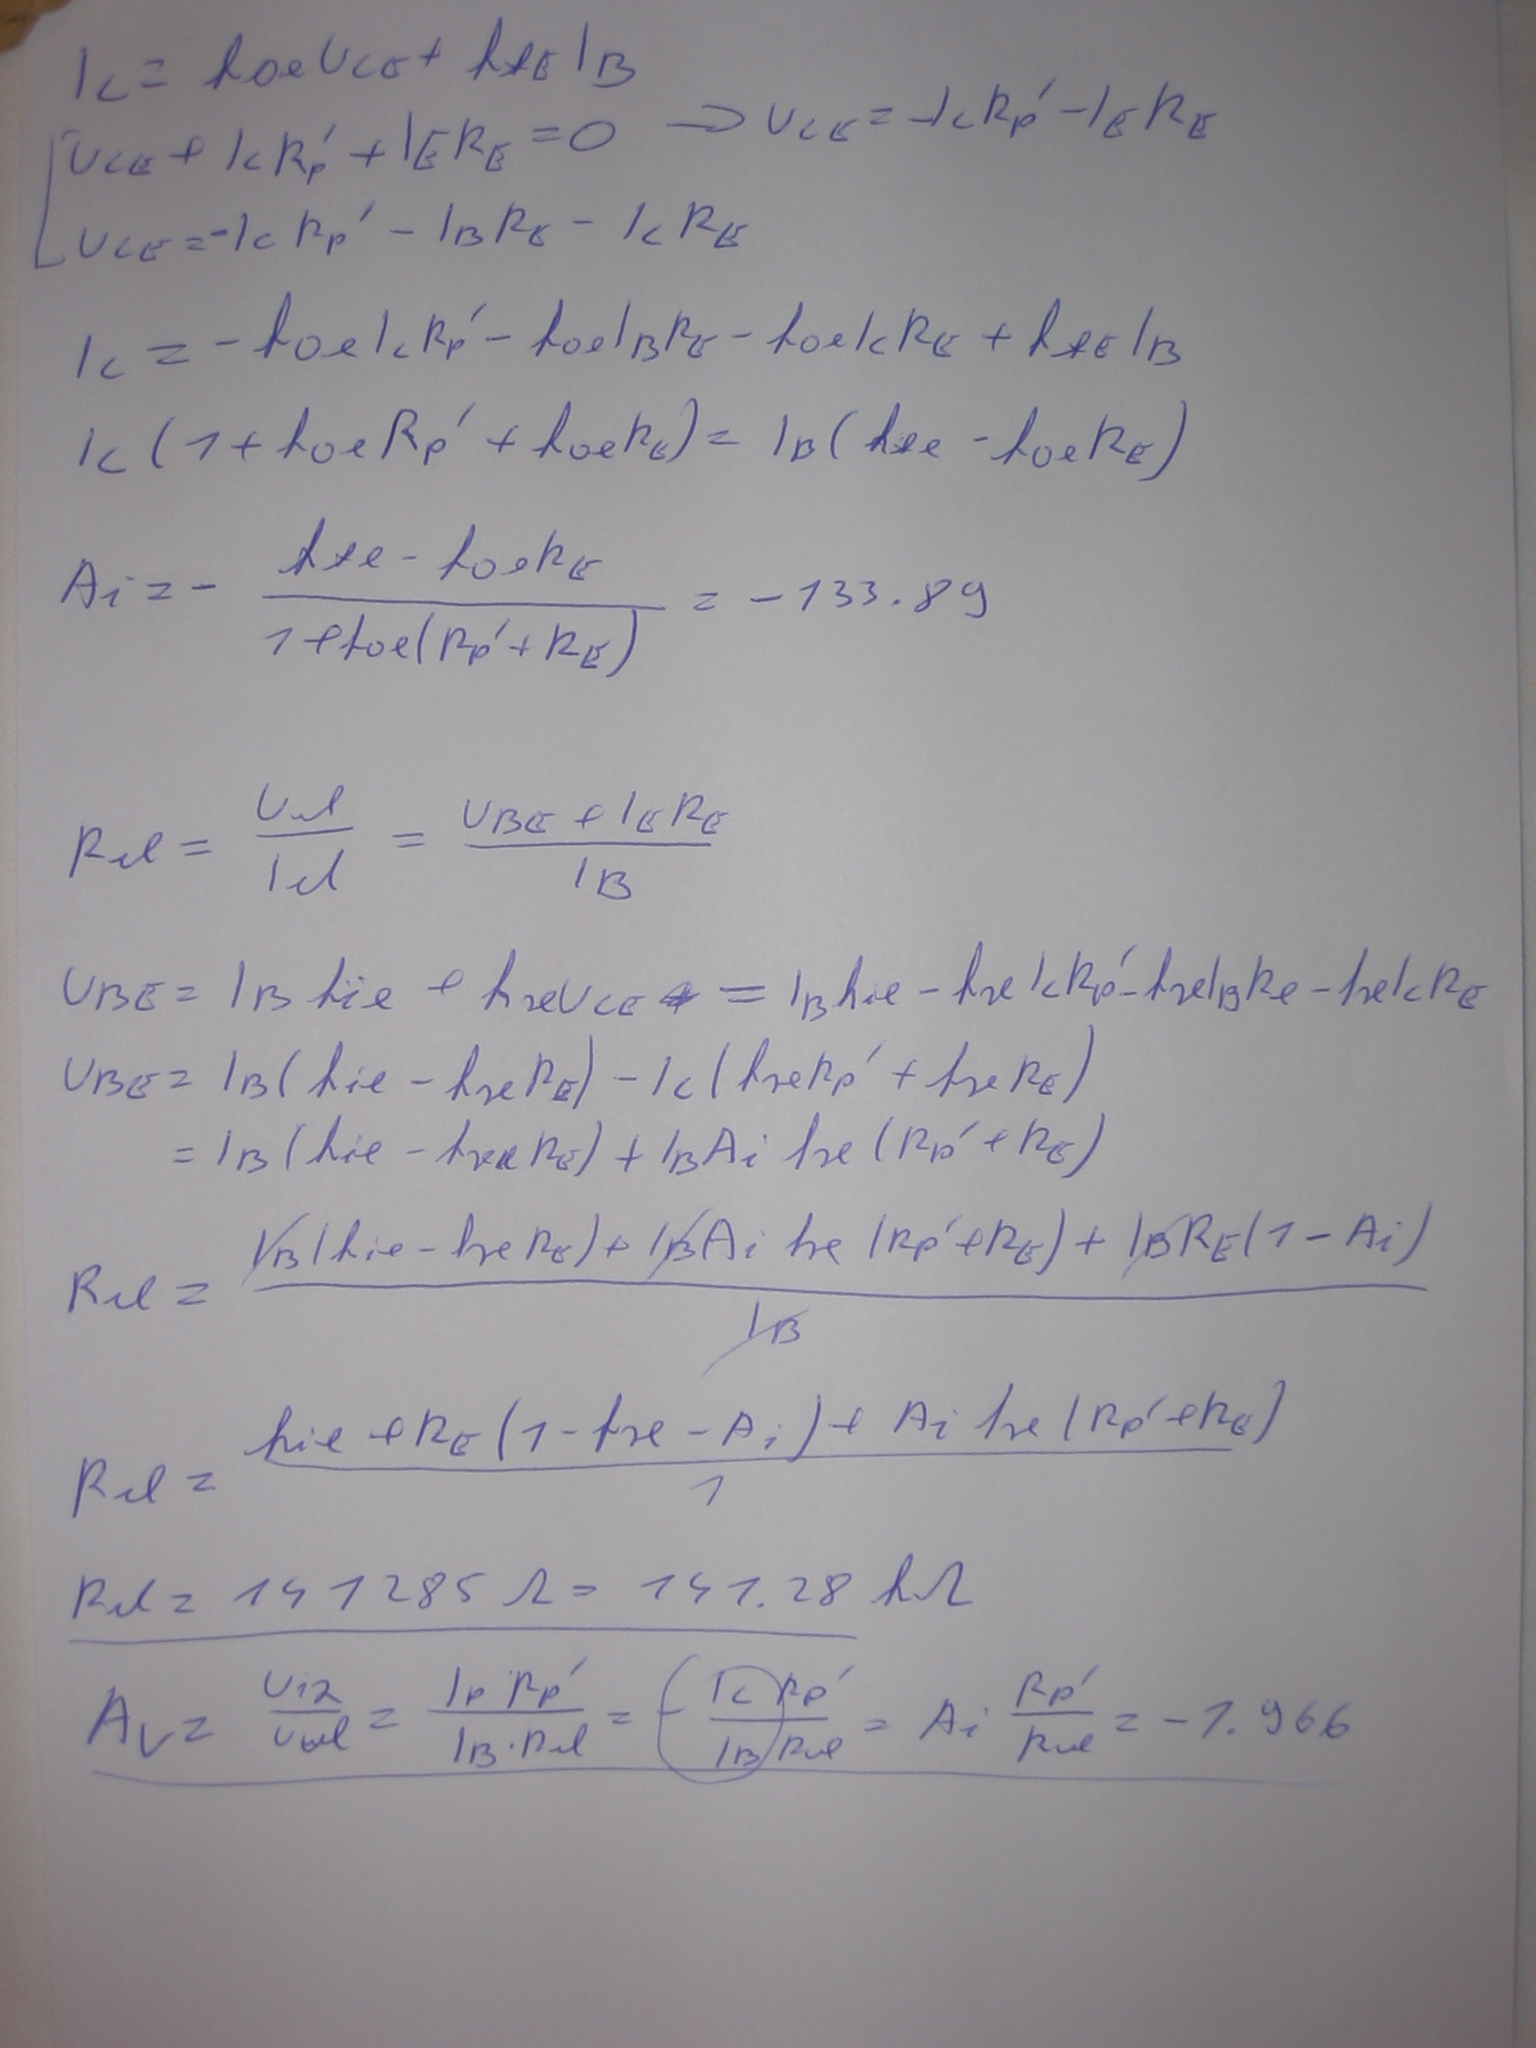 Ic = hoe UCE + hfE IB
UCE + Ic Rp' + IE RE = 0 → UCE = -Ic Rp' - IE RE
UCE = -Ic Rp' - IB RE - Ic RE
Ic = -hoe Ic Rp' - hoe IB RE - hoe Ic RE + hfE IB
Ic (1 + hoe Rp' + hoe RE) = IB (hfe - hoe RE)
Ai = - (hfe - hoe RE) / (1 + hoe (Rp' + RE)) = -133.89
Rul = Uul / Iul = (UBE + IE RE) / IB
UBE = IB hie + hre UCE = IB hie - hre Ic Rp' - hre IB Re - hre Ic RE
UBE = IB (hie - hre RE) - Ic (hre Rp' + hre RE)
= IB (hie - hre RE) + IB Ai hre (Rp' + RE)
Rul = (IB (hie - hre RE) + IB Ai hre (Rp' + RE) + IB RE (1 - Ai)) / IB
Rul = (hie + RE (1 - hre - Ai) + Ai hre (Rp' + RE)) / 1
Rul = 141285 Ω = 141.28 kΩ
Av = Uiz / Uul = Ip · Rp' / IB · Rul = - Ic Rp' / IB Rul = Ai Rp' / Rul = -1.966